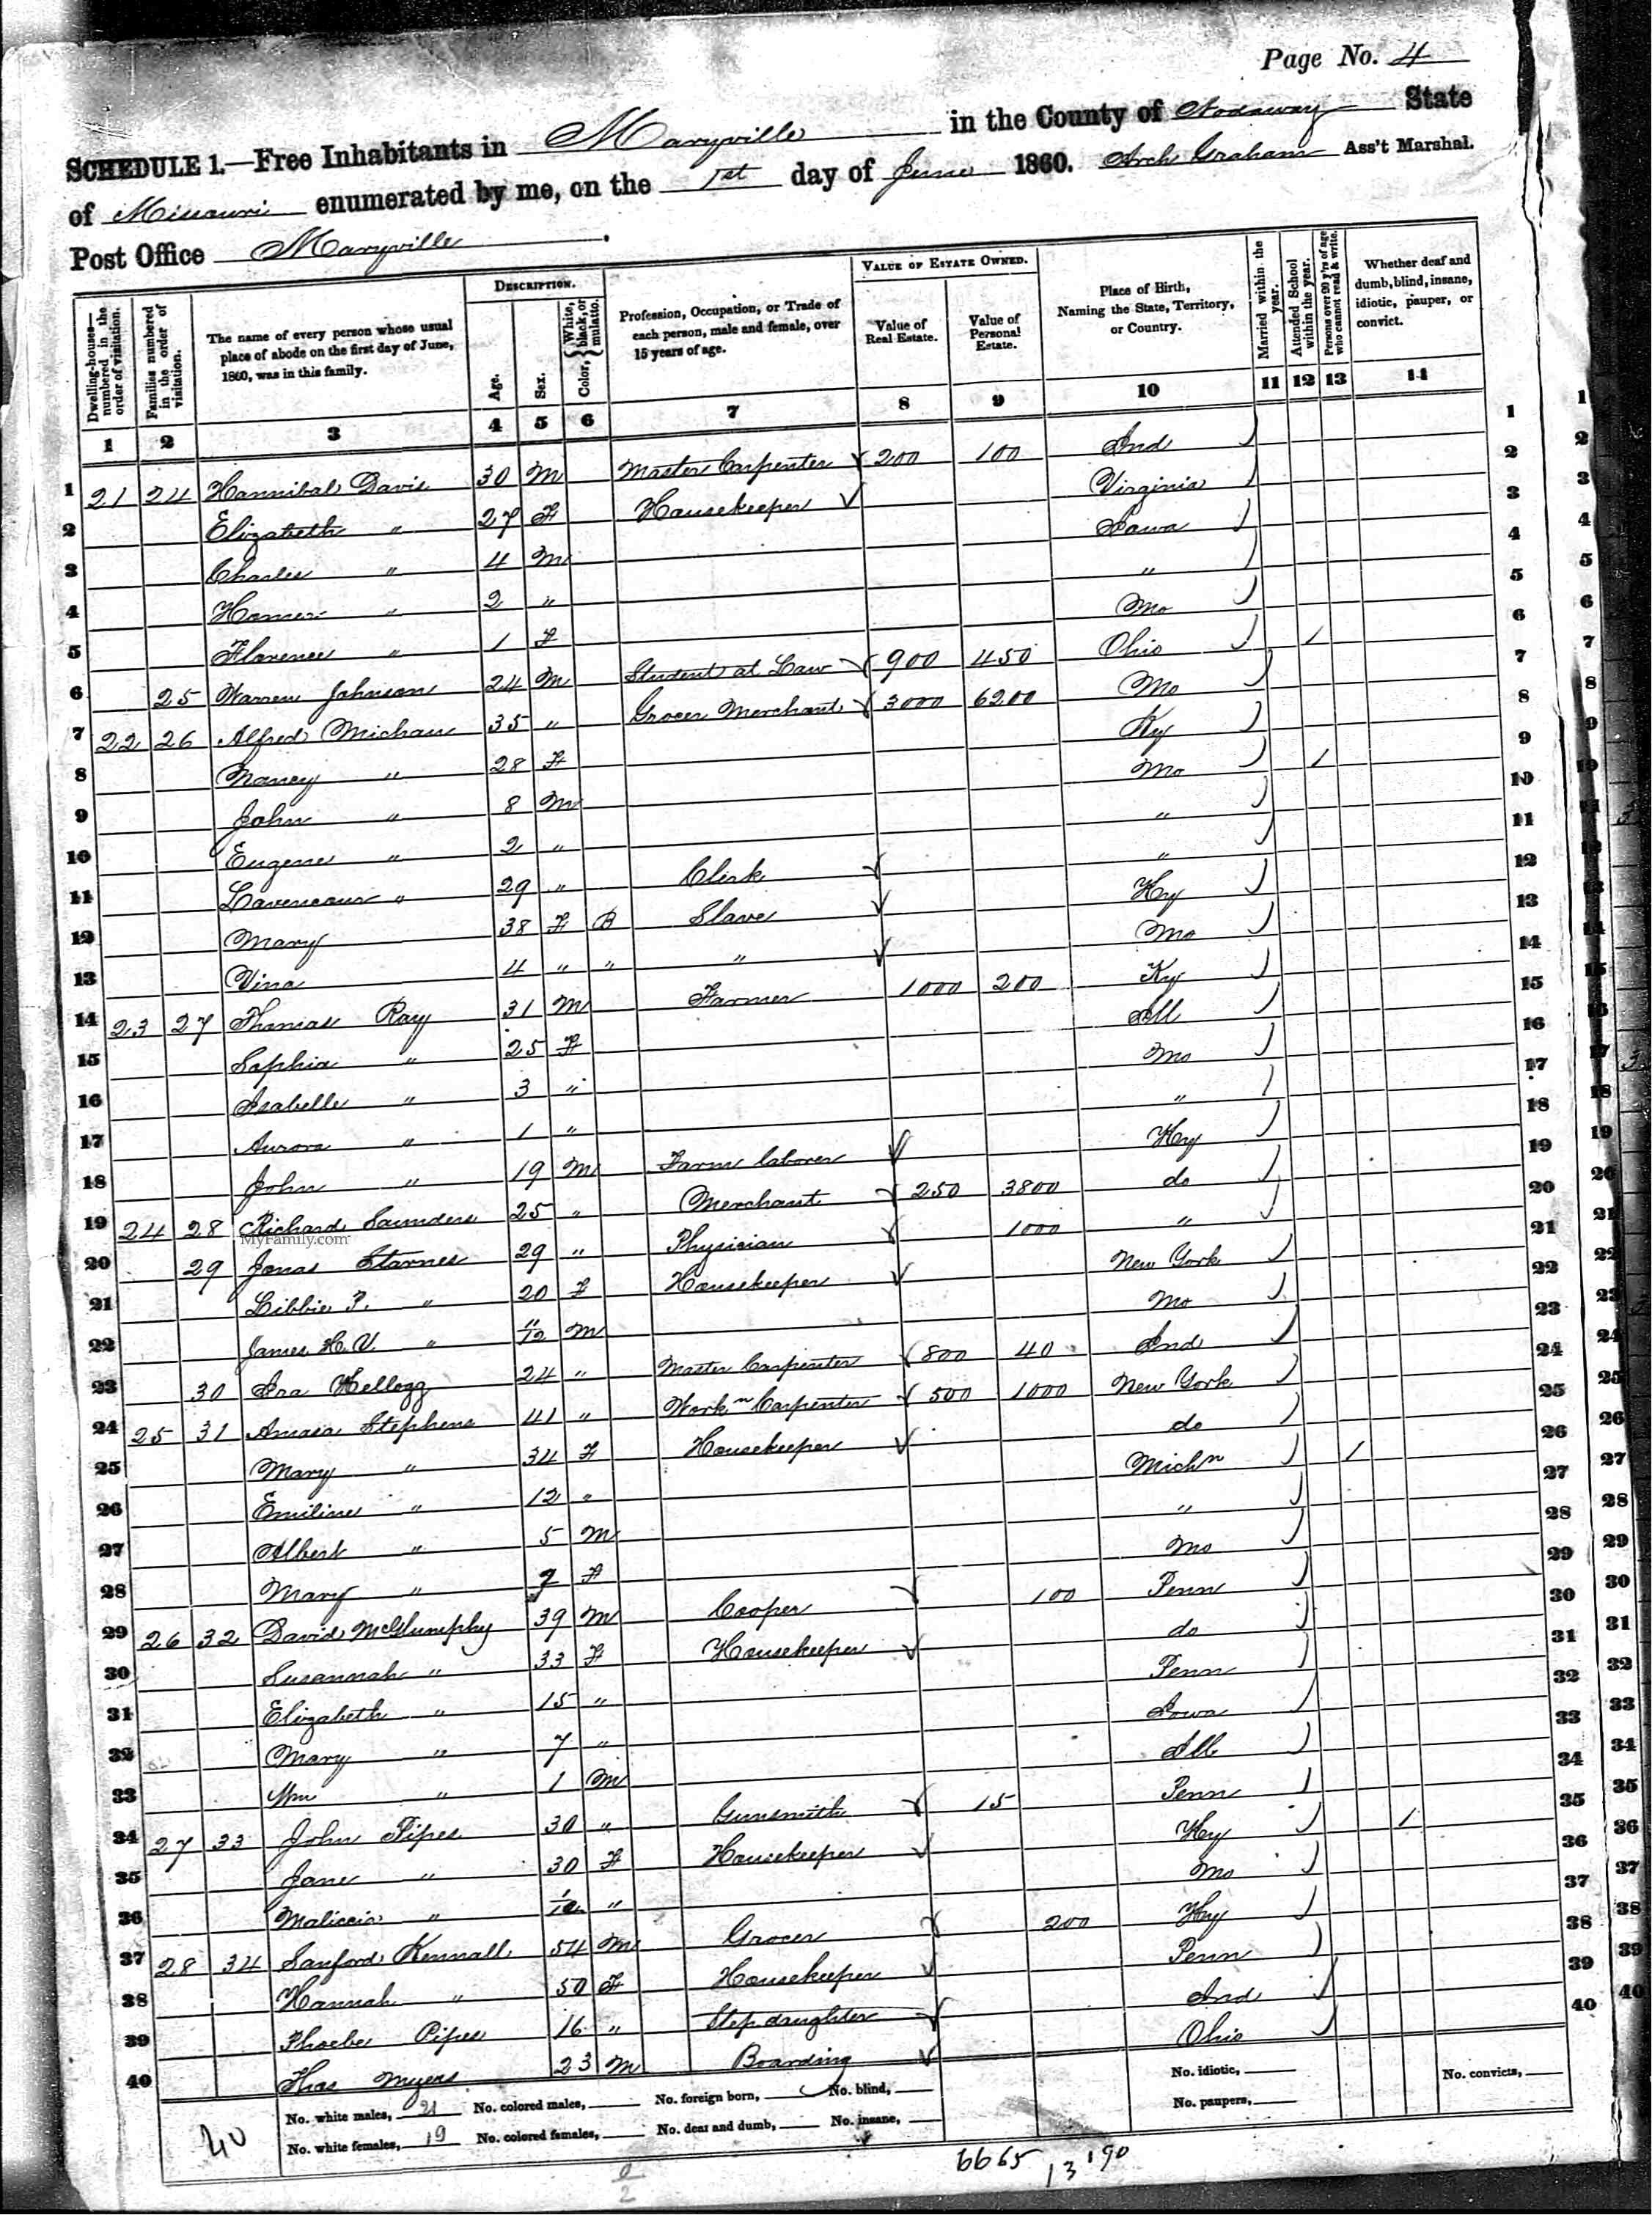 Page No. 4
SCHEDULE 1.—Free Inhabitants in Maryville in the County of Nodaway State
of Missouri enumerated by me, on the 1st day of June 1860. Arch Graham Ass't Marshal.
Post Office Maryville.
Dwelling-houses—numbered in the order of visitation.
Families numbered in the order of visitation.
The name of every person whose usual place of abode on the first day of June, 1860, was in this family.
DESCRIPTION.
Age.
Sex.
Color, White, black, or mulatto.
Profession, Occupation, or Trade of each person, male and female, over 15 years of age.
VALUE OF ESTATE OWNED.
Value of Real Estate.
Value of Personal Estate.
Place of Birth, Naming the State, Territory, or Country.
Married within the year.
Attended School within the year.
Persons over 20 y'rs of age who cannot read & write.
Whether deaf and dumb, blind, insane, idiotic, pauper, or convict.
1 2 3 4 5 6 7 8 9 10 11 12 13 14
1 21 24 Hannibal Davis 30 M Master Carpenter 200 100 Ind 1
2 Elizabeth " 27 F Housekeeper Virginia 2
3 Charles " 4 M Iowa 3
4 Homer " 2 " " 4
5 Florence " 1 F Mo 5
6 25 Warren Johnson 24 M Student at Law 900 450 Ohio / 6
7 22 26 Alfred Michau 35 " Grocer Merchant 3000 6200 Mo 7
8 Nancy " 28 F Ky 8
9 John " 8 M Mo / 9
10 Eugene " 2 " " 10
11 " 29 " Clerk " 11
12 Mary 38 F B Slave Ky 12
13 Vina 4 " " " Mo 13
14 23 27 Thomas Ray 31 M Farmer 1000 200 Ky 14
15 Sophia " 25 F Ill 15
16 Isabelle " 3 " Mo 16
17 Aurora " 1 " " 17
18 John " 19 M Farm laborer Ky 18
19 24 28 Richard Saunders 25 " Merchant 250 3800 do 19
MyFamily.com
20 29 Jonas Starnes 29 " Physician 1000 " 20
21 Libbie P. " 20 F Housekeeper New York 21
22 James H. V. " 11/12 M Mo 22
23 30 Ira Kellogg 24 " Master Carpenter 800 40 Ind 23
24 25 31 Amasa Stephens 41 " Workn Carpenter 500 1000 New York 24
25 Mary " 34 F Housekeeper do 25
26 Emiline " 12 " Michn / 26
27 Albert " 5 M " 27
28 Mary " F Mo 28
29 26 32 David McGlumphy 39 M Cooper 100 Penn 29
30 Susannah " 33 F Housekeeper do 30
31 Elizabeth " 15 " Penn 31
32 Mary " 7 " Iowa 32
33 Wm " 1 M Ill 33
34 27 33 John Pipes 30 " Gunsmith 15 Penn 34
35 Jane " 30 F Housekeeper Ky / 35
36 " 1/12 " Mo 36
37 28 34 Sanford Kennall 54 M Grocer 200 Ky 37
38 Hannah " 50 F Housekeeper Penn 38
39 Phoebe Pipes 16 " Step daughter Ind 39
40 Myers 23 M Boarding Ohio 40
40
No. white males, 21 No. colored males, No. foreign born, No. blind, No. idiotic, No. convicts,
No. white females, 19 No. colored females, No. deaf and dumb, No. insane, No. paupers,
6665 13190